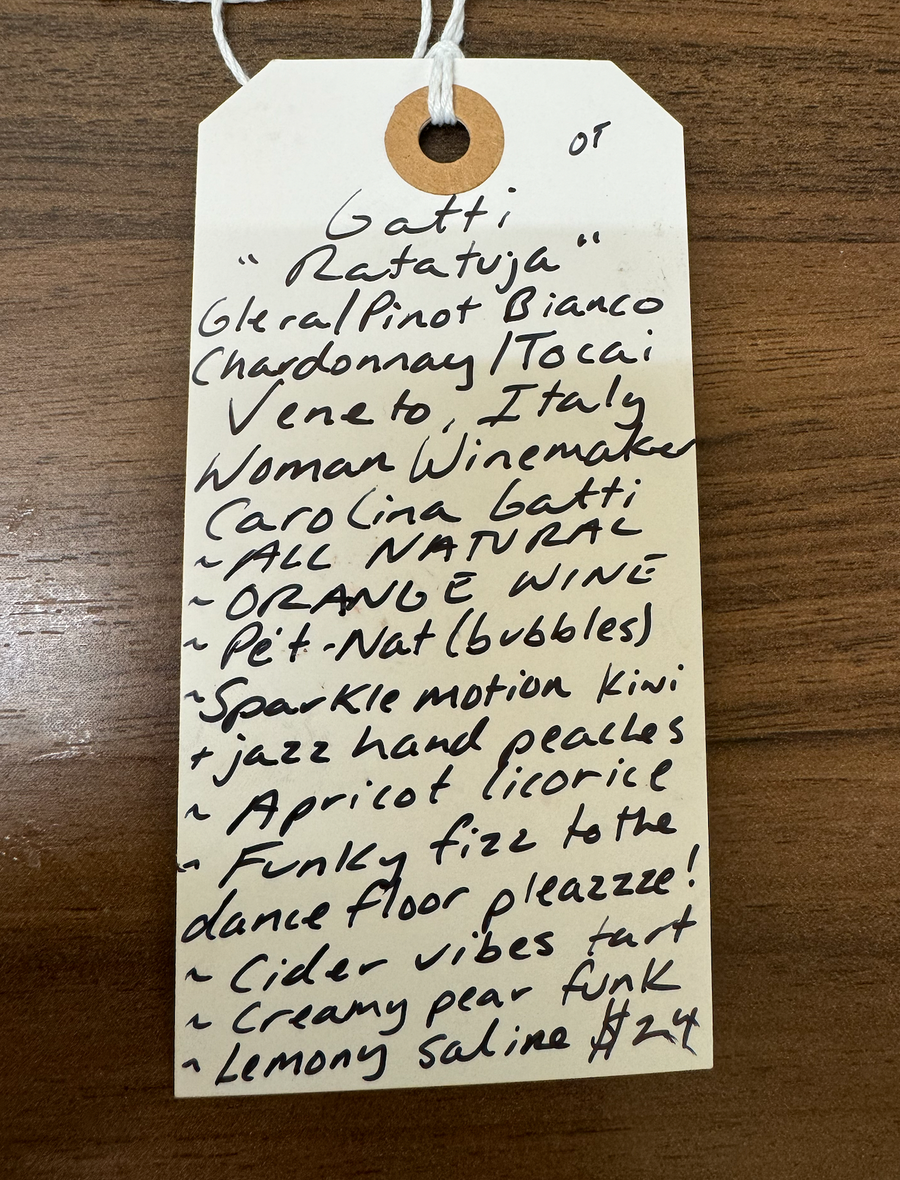 OT
Gatti
"Ratatuja"
Glera/Pinot Bianco
Chardonnay/Tocai
Veneto, Italy
Woman Winemaker
Carolina Gatti
~ALL NATURAL
~ORANGE WINE
~Pét-Nat (bubbles)
~Sparkle motion kiwi
+ jazz hand peaches
~Apricot licorice
~Funky fizz to the
dance floor pleazzze!
~Cider vibes tart
~Creamy pear funk
~Lemony saline $24